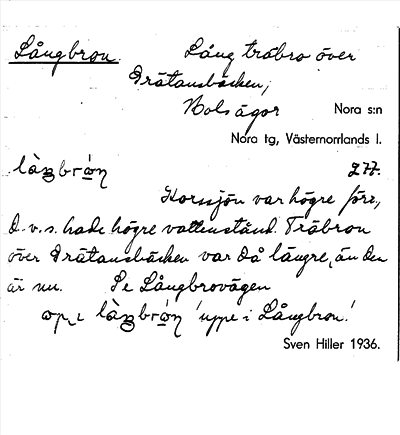 Långbron. Lång träbro över
Drätansbäcken,
Bols ägor Nora s:n
Nora tg, Västernorrlands l.
277.
Korssjön var högre förr,
d.v.s. hade högre vattenstånd. Träbron
över Drätansbäcken var då längre, än den
är nu. Se Långbrovägen
'uppe i Långbron'.
Sven Hiller 1936.